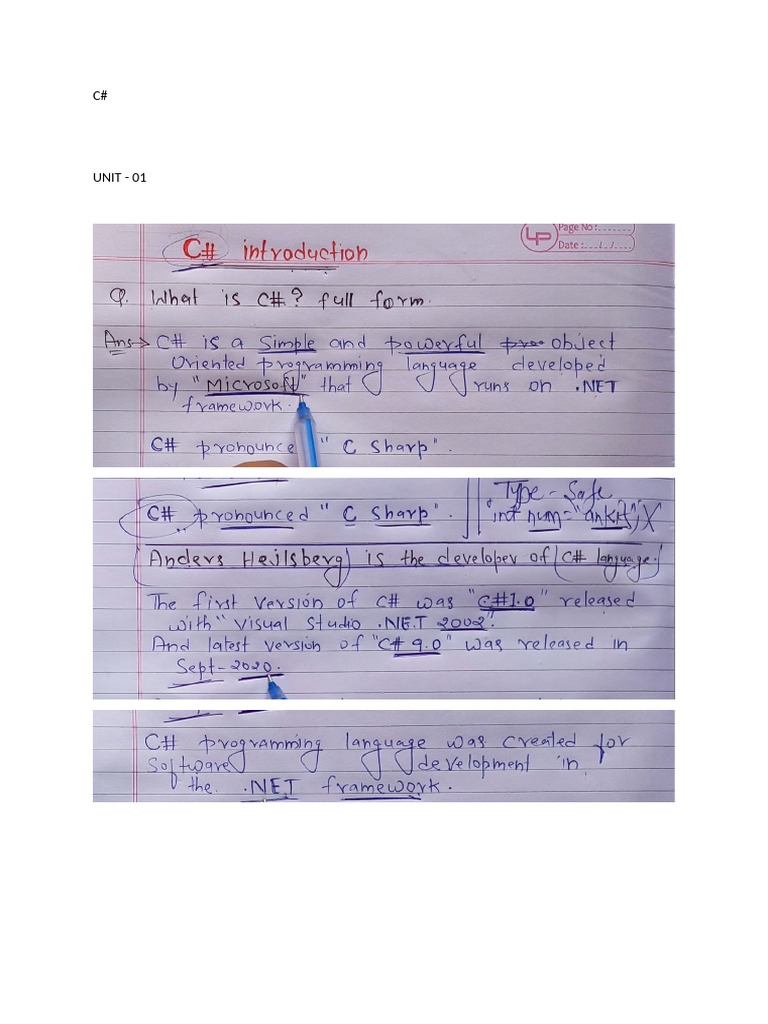 C#
UNIT - 01
Page No :.......
Date :..../../....
C# introduction
Q. What is C#? full form.
Ans → C# is a Simple and powerful object
Oriented programming language developed
by "Microsoft" that runs on .NET
framework.
C# pronounce " C Sharp".
C# pronounced " C Sharp".
Type - Safe
int num = "ankit"; X
Anders Hejlsberg is the developer of C# language.
The first version of C# was "C#1.0" released
with "Visual Studio .NET 2002".
And latest version of "C# 9.0" was released in
Sept - 2020.
C# programming language was created for
Software development in
the .NET framework.